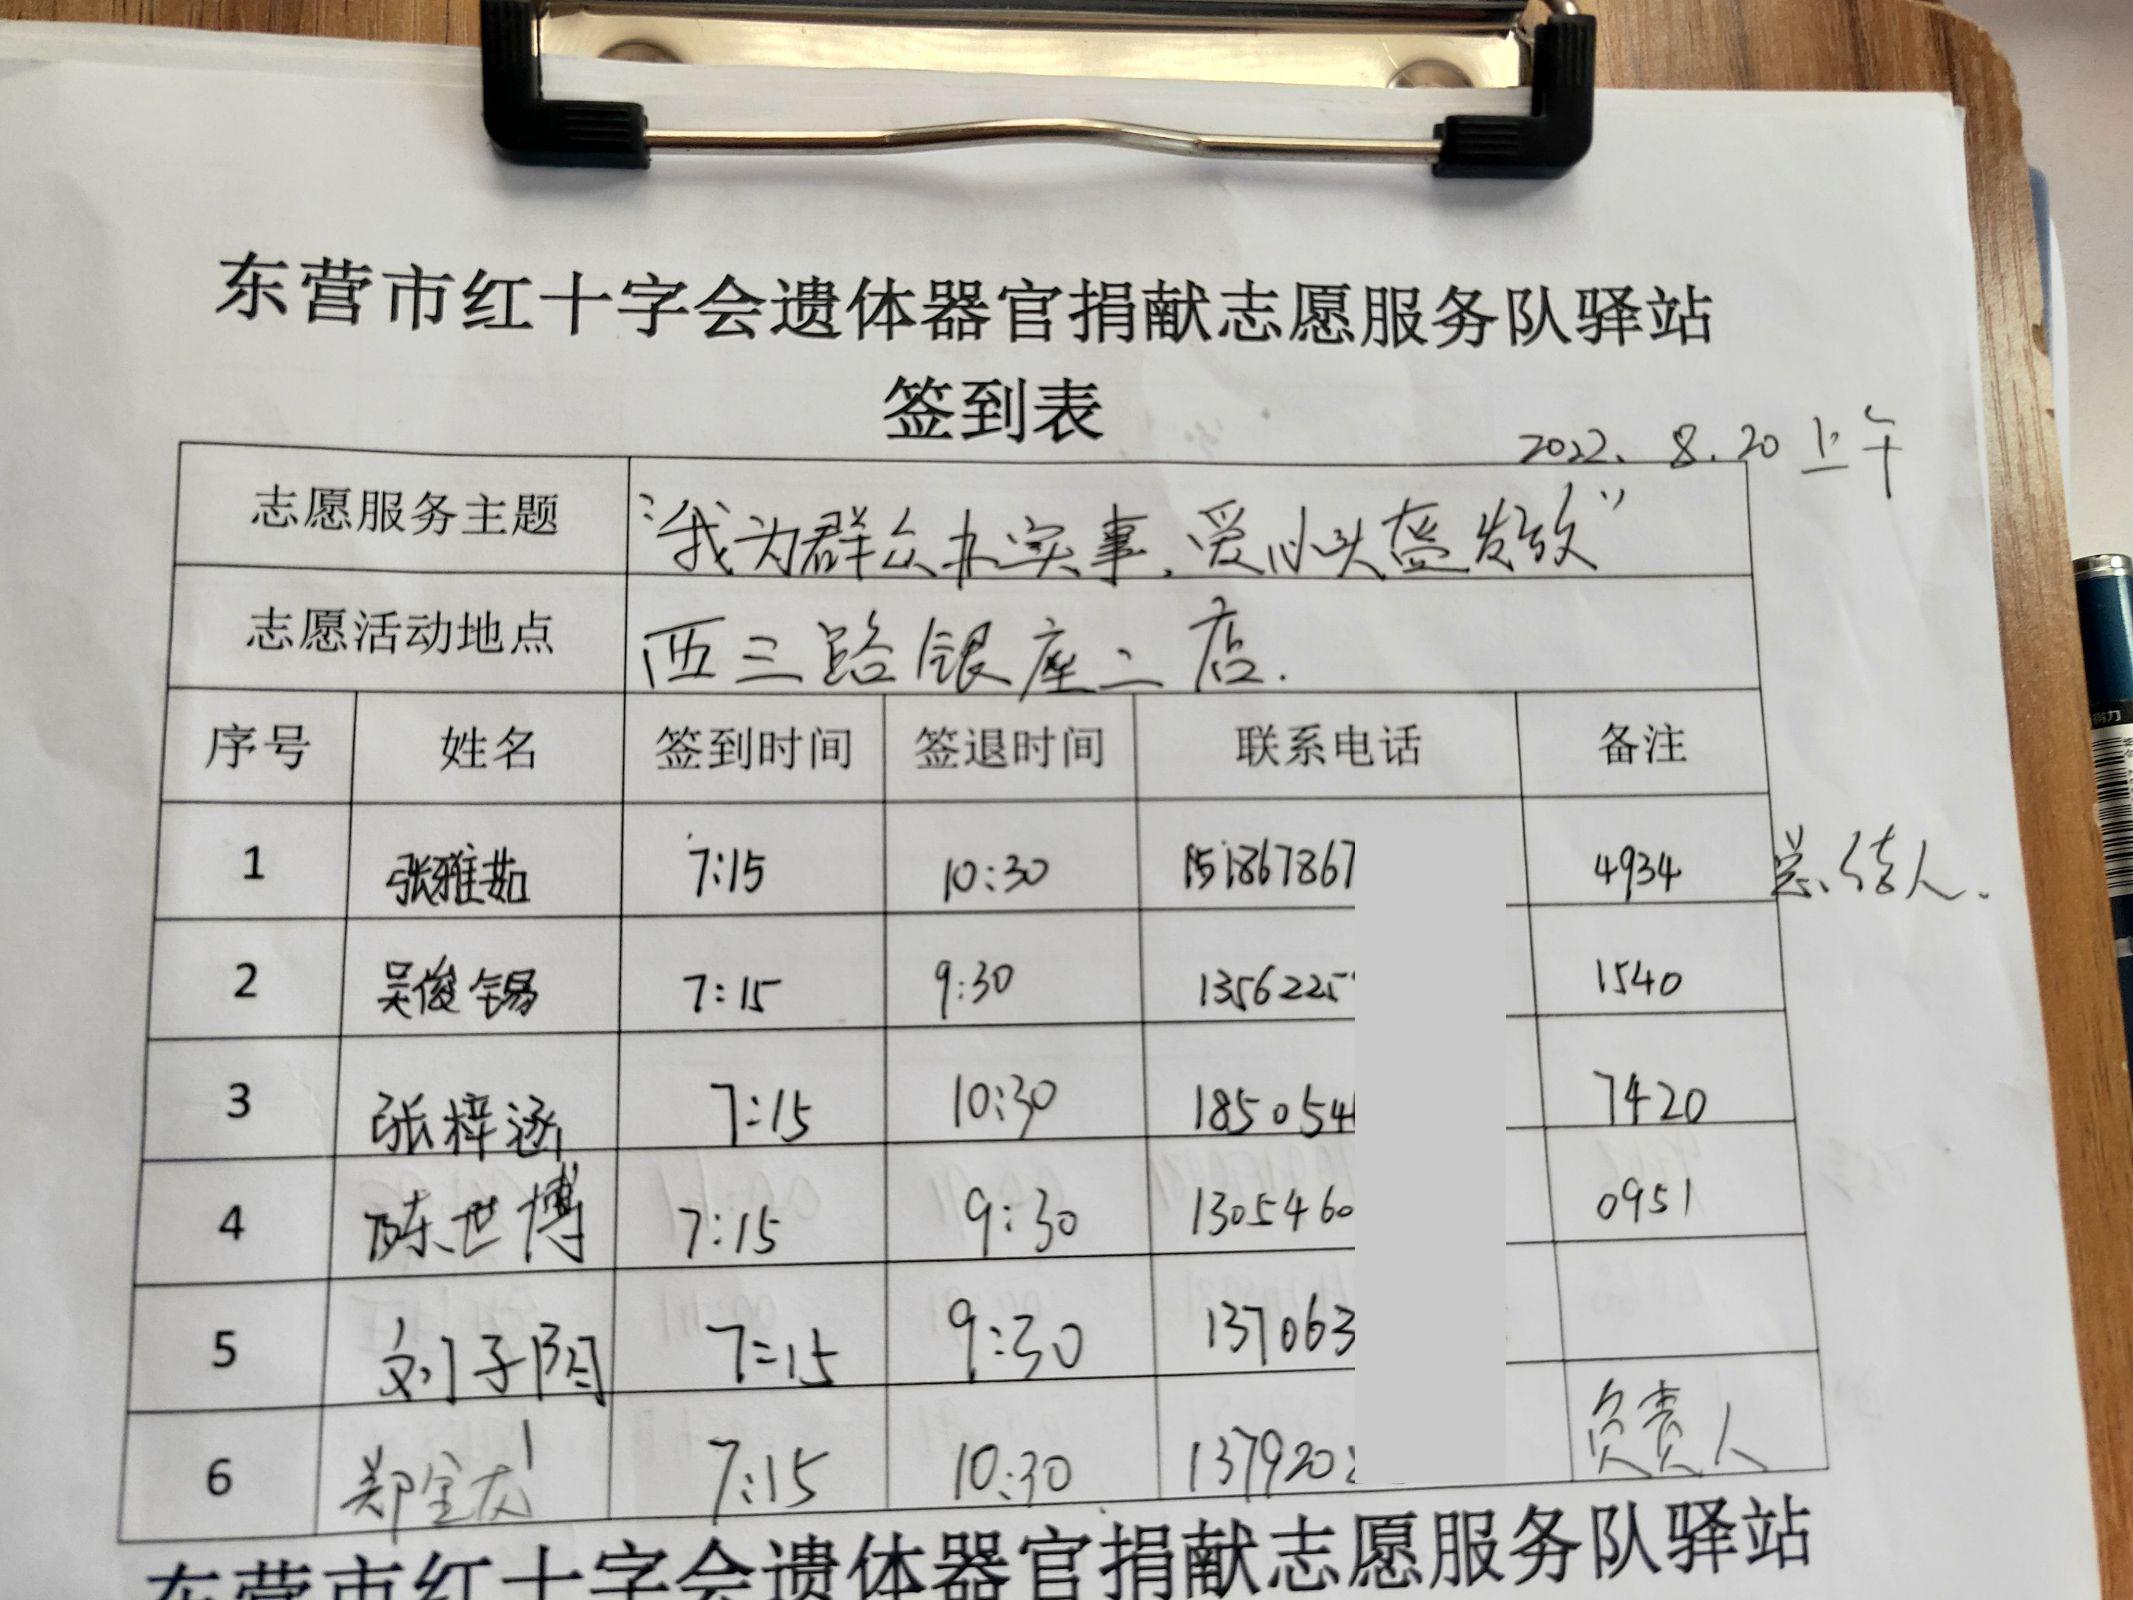 东营市红十字会遗体器官捐献志愿服务队驿站
签到表
2022.8.20上午
志愿服务主题 "我为群众办实事,爱心头盔发放"
志愿活动地点 西三路银座二店.
序号 姓名 签到时间 签退时间 联系电话 备注
1 张雅茹 7:15 10:30 151867867 4934 总结人.
2 吴俊锡 7:15 9:30 1356225 1540
3 张梓涵 7:15 10:30 1850546 7420
4 陈世博 7:15 9:30 1305460 0951
5 刘子阳 7:15 9:30 137063
6 7:15 10:30 137920 负责人
东营市红十字会遗体器官捐献志愿服务队驿站